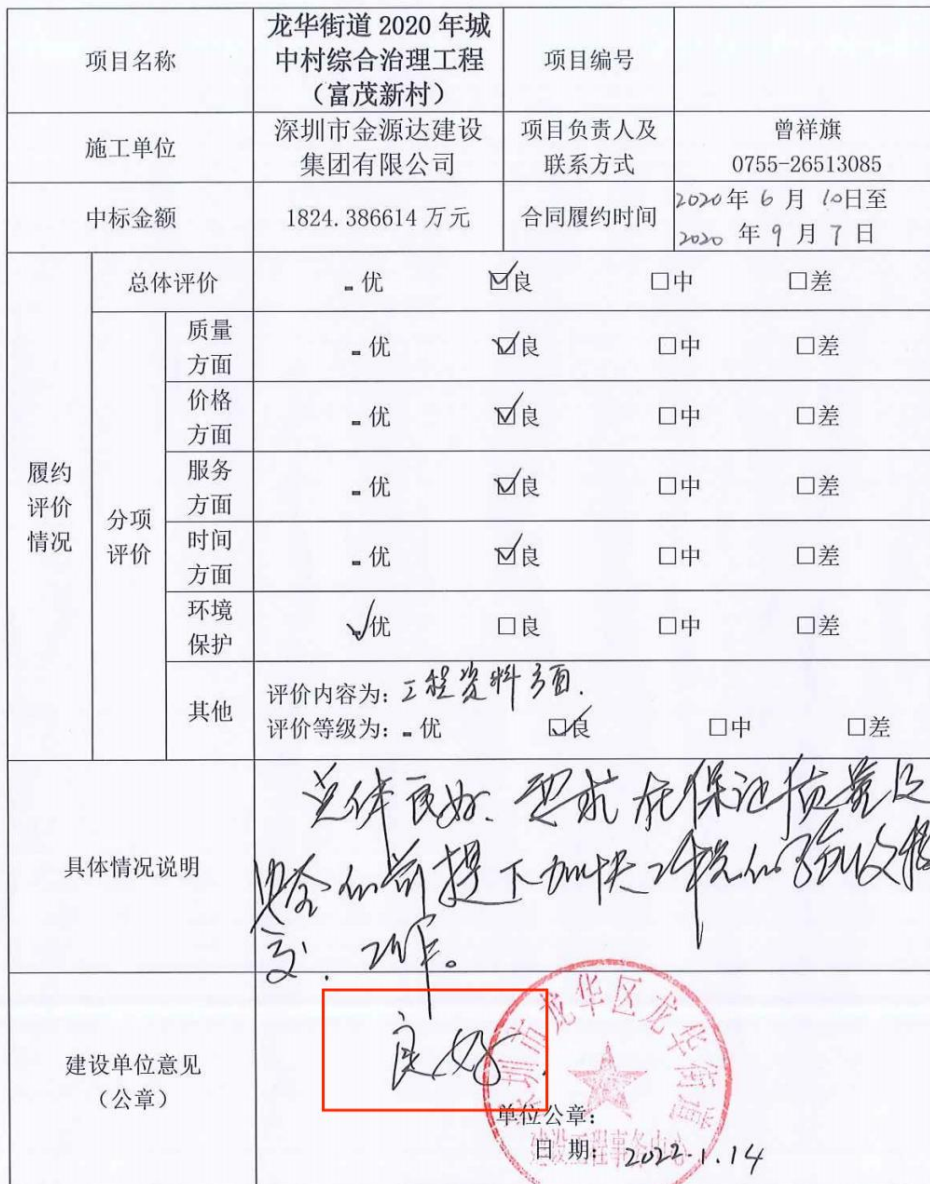 项目名称
龙华街道 2020 年城
中村综合治理工程
（富茂新村）
项目编号
施工单位
深圳市金源达建设
集团有限公司
项目负责人及
联系方式
曾祥旗
0755-26513085
中标金额
1824.386614 万元
合同履约时间
2020年 6 月 10日至
2020 年 9 月 7 日
履约
评价
情况
总体评价
优 ☑良 □中 □差
分项
评价
质量
方面
优 ☑良 □中 □差
价格
方面
优 ☑良 □中 □差
服务
方面
优 ☑良 □中 □差
时间
方面
优 ☑良 □中 □差
环境
保护
☑优 □良 □中 □差
其他
评价内容为：工程资料方面.
评价等级为： 优 ☑良 □中 □差
具体情况说明
总体良好. 要求在保证质量及
安全的前提下加快工程的验收移
交. 工作。
建设单位意见
（公章）
良好
深圳市龙华区龙华街道
建设工程事务中心
单位公章：
日 期：2022.1.14